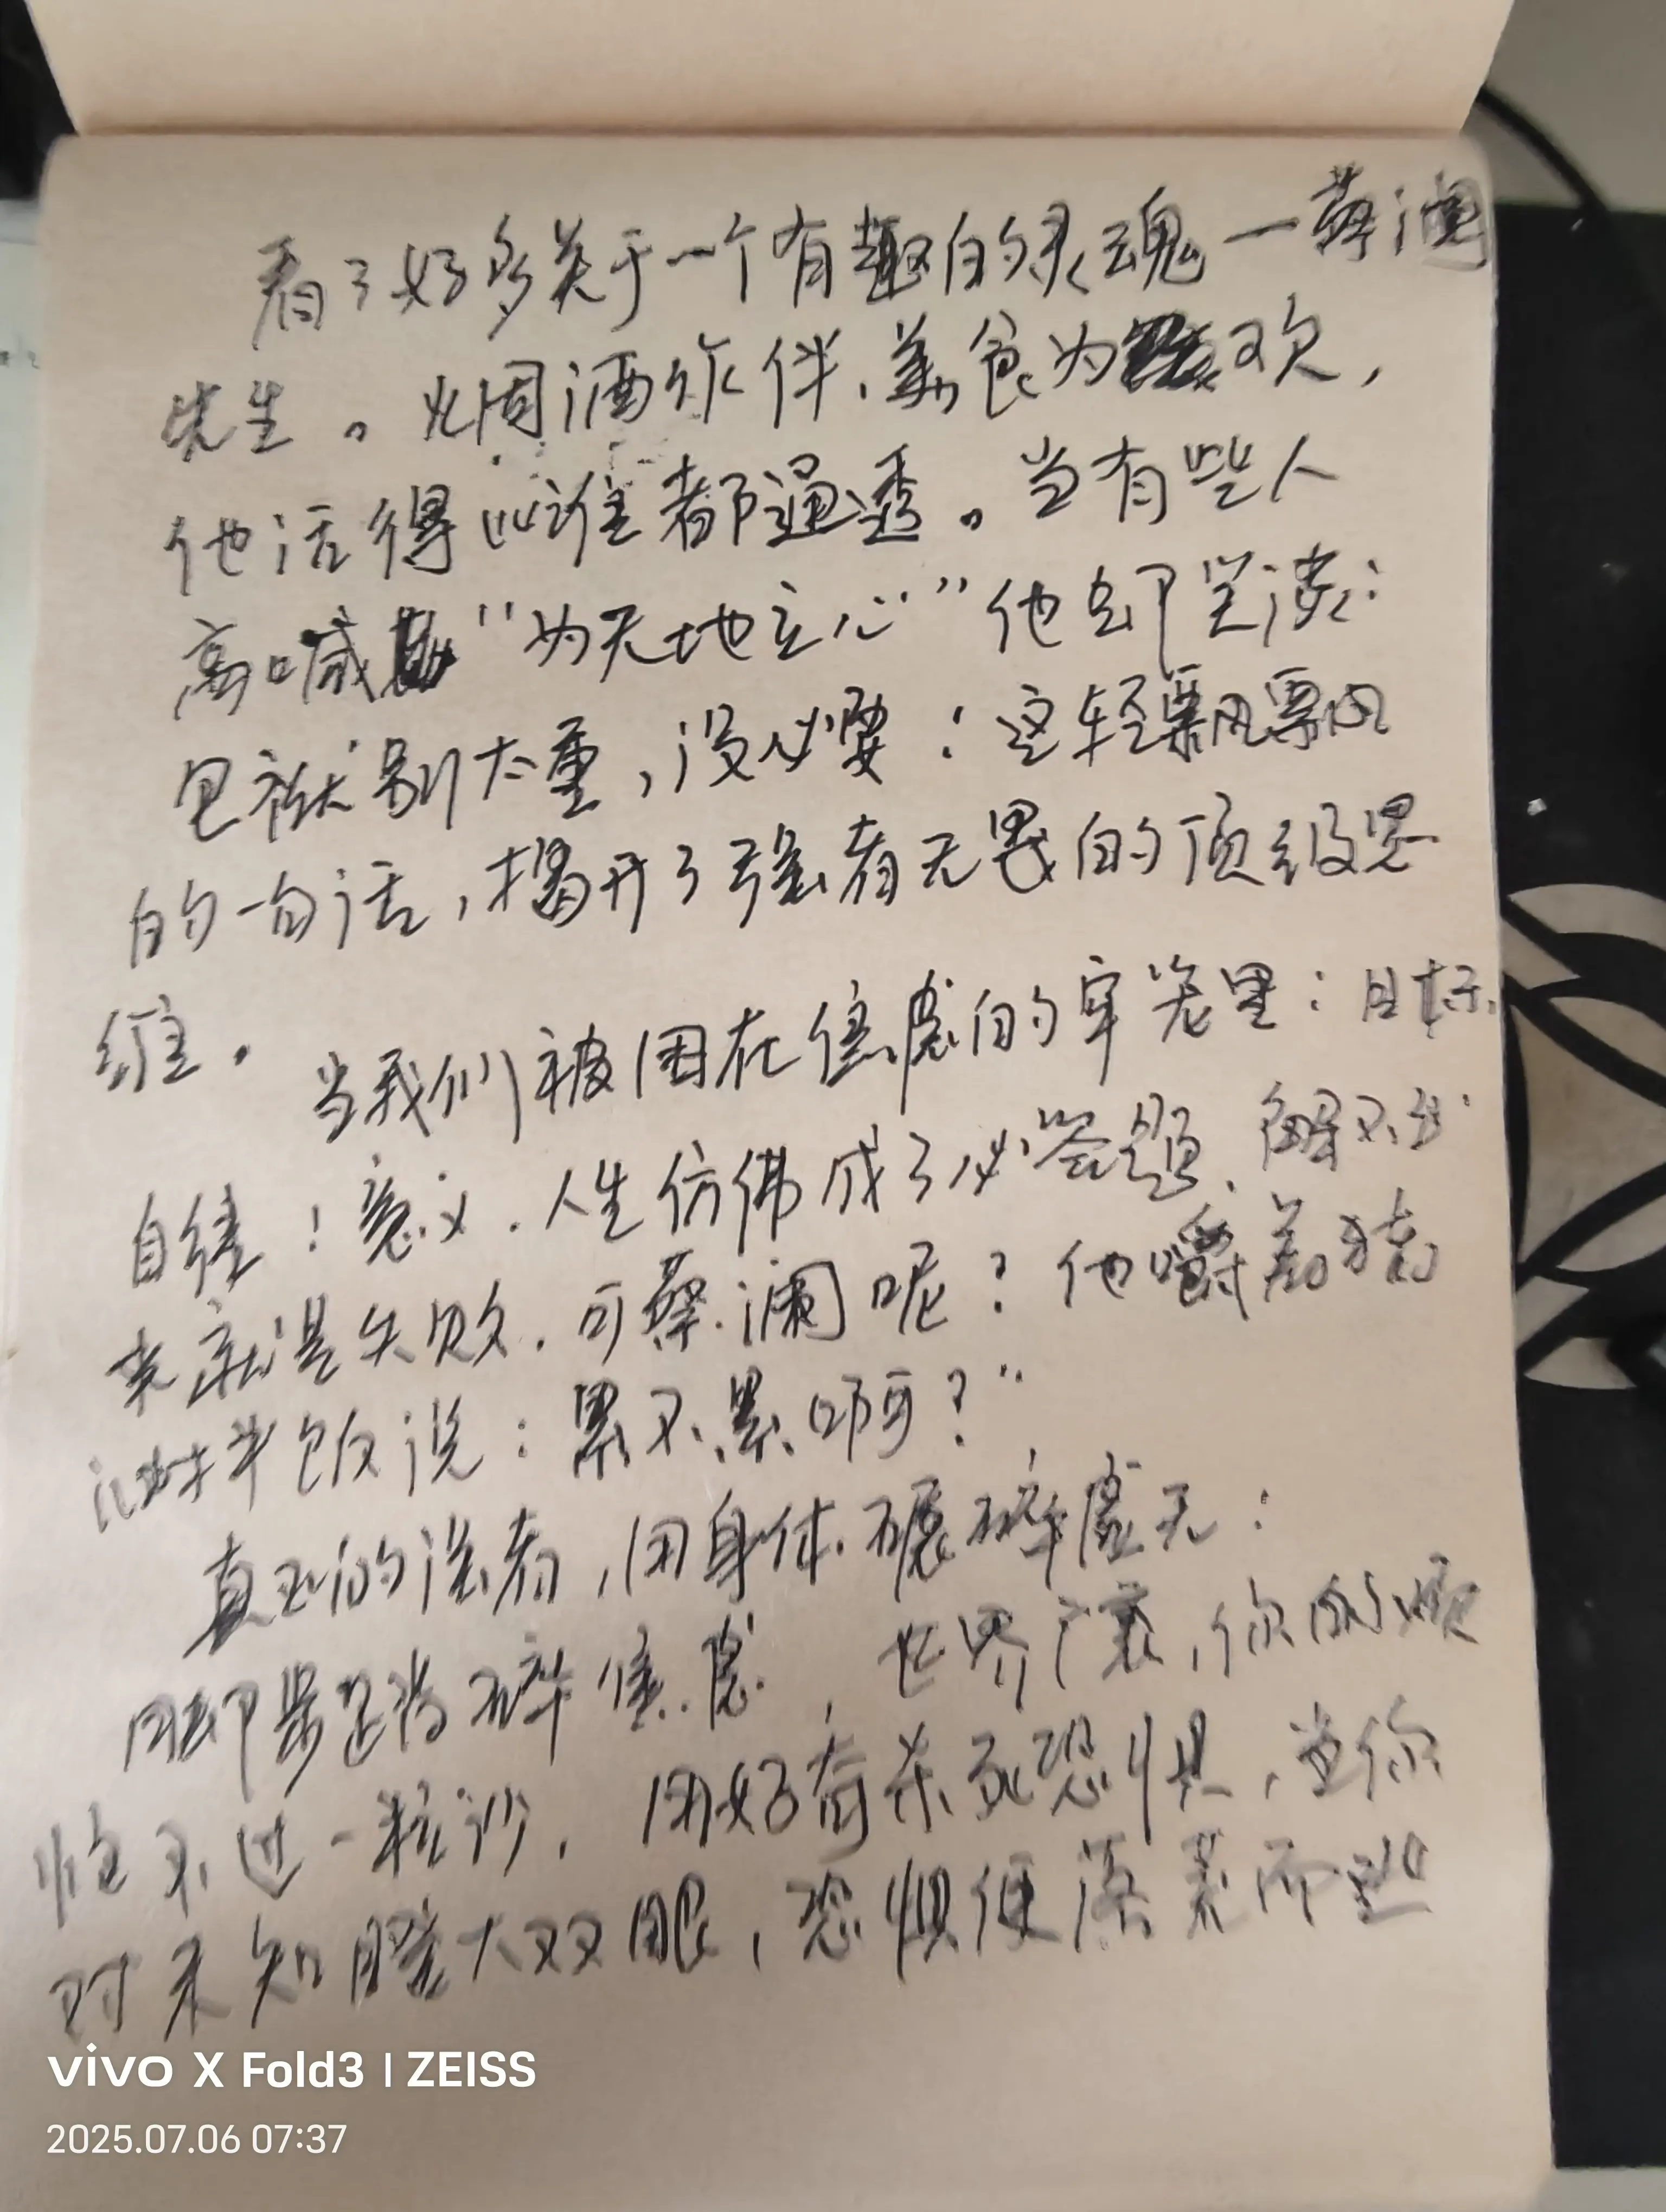 看了好多关于一个有趣的灵魂一蔡澜
先生。烟酒作伴、美食为欢，
他活得比谁都通透。当有些人
高喊“为天地立心”他却笑谈：
包袱别太重，没必要！这轻飘飘
的一句话，揭开了强者无畏的顶级思
维。
当我们被困在焦虑的牢笼里：目标、
自律！意义．人生仿佛成了必答题、解不出
来就是失败．可蔡澜呢？他嚼着猪
油拌饭说：累不累啊？”
真正的强者，用身体碾碎虚无：
用脚步踏碎焦虑，世界广袤，你的烦
恼不过一粒沙，用好奇杀死恐惧，当你
对未知瞪大双眼，恐惧便落荒而逃
vivo X Fold3 | ZEISS
2025.07.06 07:37